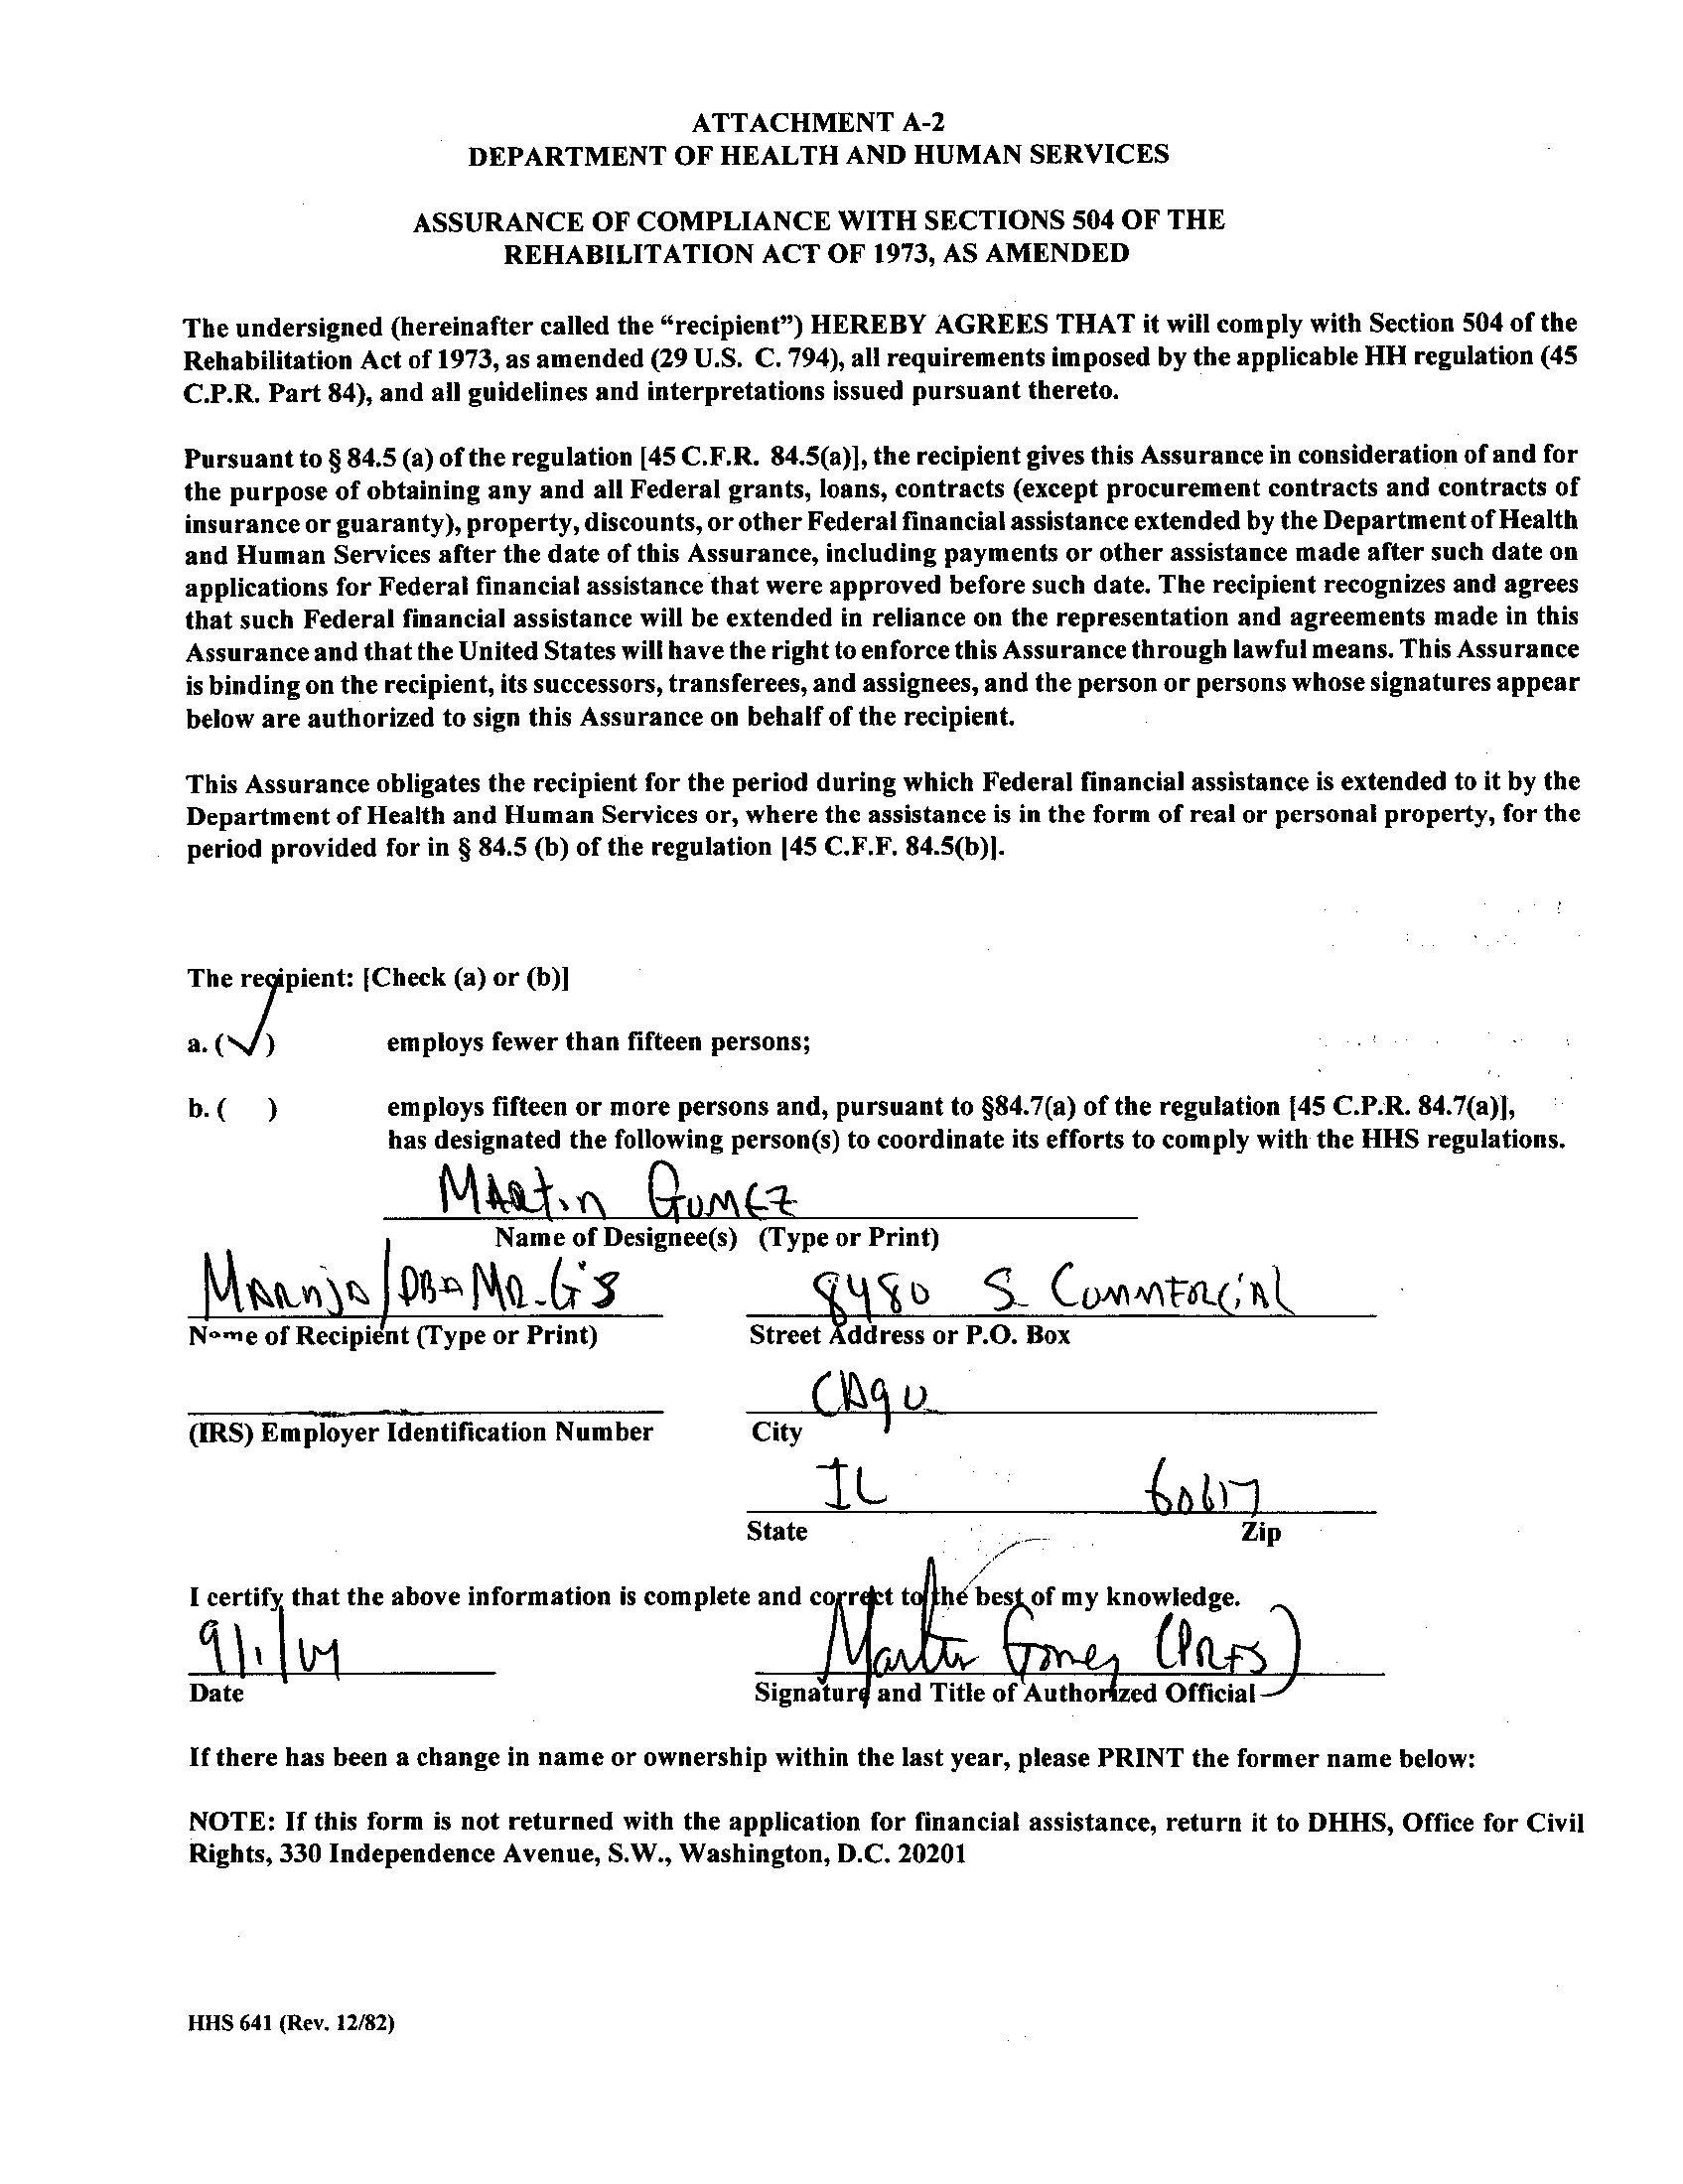 ATTACHMENT A-2
DEPARTMENT OF HEALTH AND HUMAN SERVICES
ASSURANCE OF COMPLIANCE WITH SECTIONS 504 OF THE
REHABILITATION ACT OF 1973, AS AMENDED
The undersigned (hereinafter called the “recipient”) HEREBY AGREES THAT it will comply with Section 504 of the
Rehabilitation Act of 1973, as amended (29 U.S. C. 794), all requirements imposed by the applicable HH regulation (45
C.P.R. Part 84), and all guidelines and interpretations issued pursuant thereto.
Pursuant to § 84.5 (a) of the regulation [45 C.F.R. 84.5(a)], the recipient gives this Assurance in consideration of and for
the purpose of obtaining any and all Federal grants, loans, contracts (except procurement contracts and contracts of
insurance or guaranty), property, discounts, or other Federal financial assistance extended by the Department of Health
and Human Services after the date of this Assurance, including payments or other assistance made after such date on
applications for Federal financial assistance that were approved before such date. The recipient recognizes and agrees
that such Federal financial assistance will be extended in reliance on the representation and agreements made in this
Assurance and that the United States will have the right to enforce this Assurance through lawful means. This Assurance
is binding on the recipient, its successors, transferees, and assignees, and the person or persons whose signatures appear
below are authorized to sign this Assurance on behalf of the recipient.
This Assurance obligates the recipient for the period during which Federal financial assistance is extended to it by the
Department of Health and Human Services or, where the assistance is in the form of real or personal property, for the
period provided for in § 84.5 (b) of the regulation [45 C.F.F. 84.5(b)].
The recipient: [Check (a) or (b)]
a. (✓) employs fewer than fifteen persons;
b. ( ) employs fifteen or more persons and, pursuant to §84.7(a) of the regulation [45 C.P.R. 84.7(a)],
has designated the following person(s) to coordinate its efforts to comply with the HHS regulations.
MARtin GomEz
Name of Designee(s) (Type or Print)
/DBA MR-G'S 8480 S. CommERCiAl
Name of Recipient (Type or Print) Street Address or P.O. Box
(IRS) Employer Identification Number City
IL 60617
State Zip
I certify that the above information is complete and correct to the best of my knowledge.
Martin Gomez (PRES)
Date Signature and Title of Authorized Official
If there has been a change in name or ownership within the last year, please PRINT the former name below:
NOTE: If this form is not returned with the application for financial assistance, return it to DHHS, Office for Civil
Rights, 330 Independence Avenue, S.W., Washington, D.C. 20201
HHS 641 (Rev. 12/82)